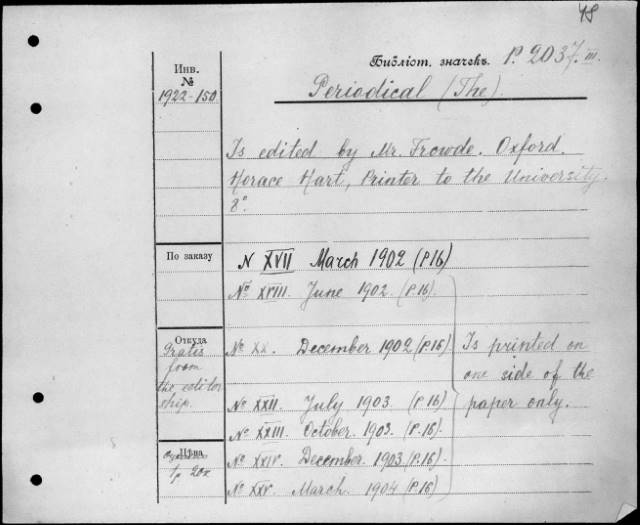 48
Библіот. значекъ. P. 2037. III.
Инв.
№
1922-150
Periodical (The).
Is edited by Mr. Frowde. Oxford.
Horace Hart, Printer to the University.
8°.
По заказу
N XVII March 1902 (P16)
№ XVIII. June 1902. (P.16).
Откуда
gratis
from
the editor
ship.
№ XX. December 1902 (P.16).
Is printed on
one side of the
paper only.
№ XXII. July 1903. (P.16)
№ XXIII. October. 1903. (P.16).
Цѣна
№ XXIV. December. 1903 (P.16)
№ XXV. March. 1904 (P.16)